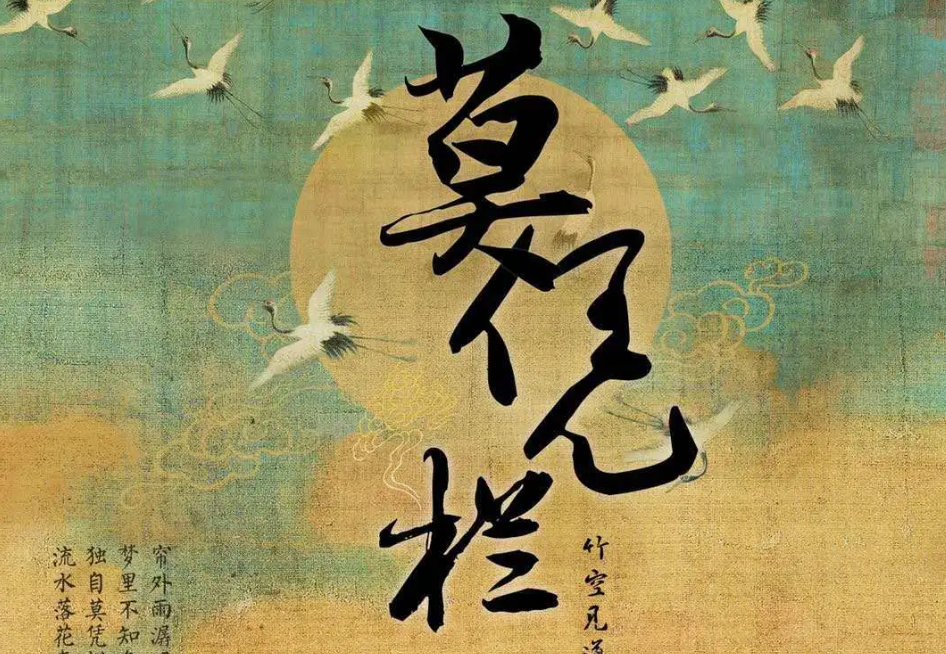 莫凭栏
竹空见
帘外雨潺
梦里不知
独自莫凭
流水落花